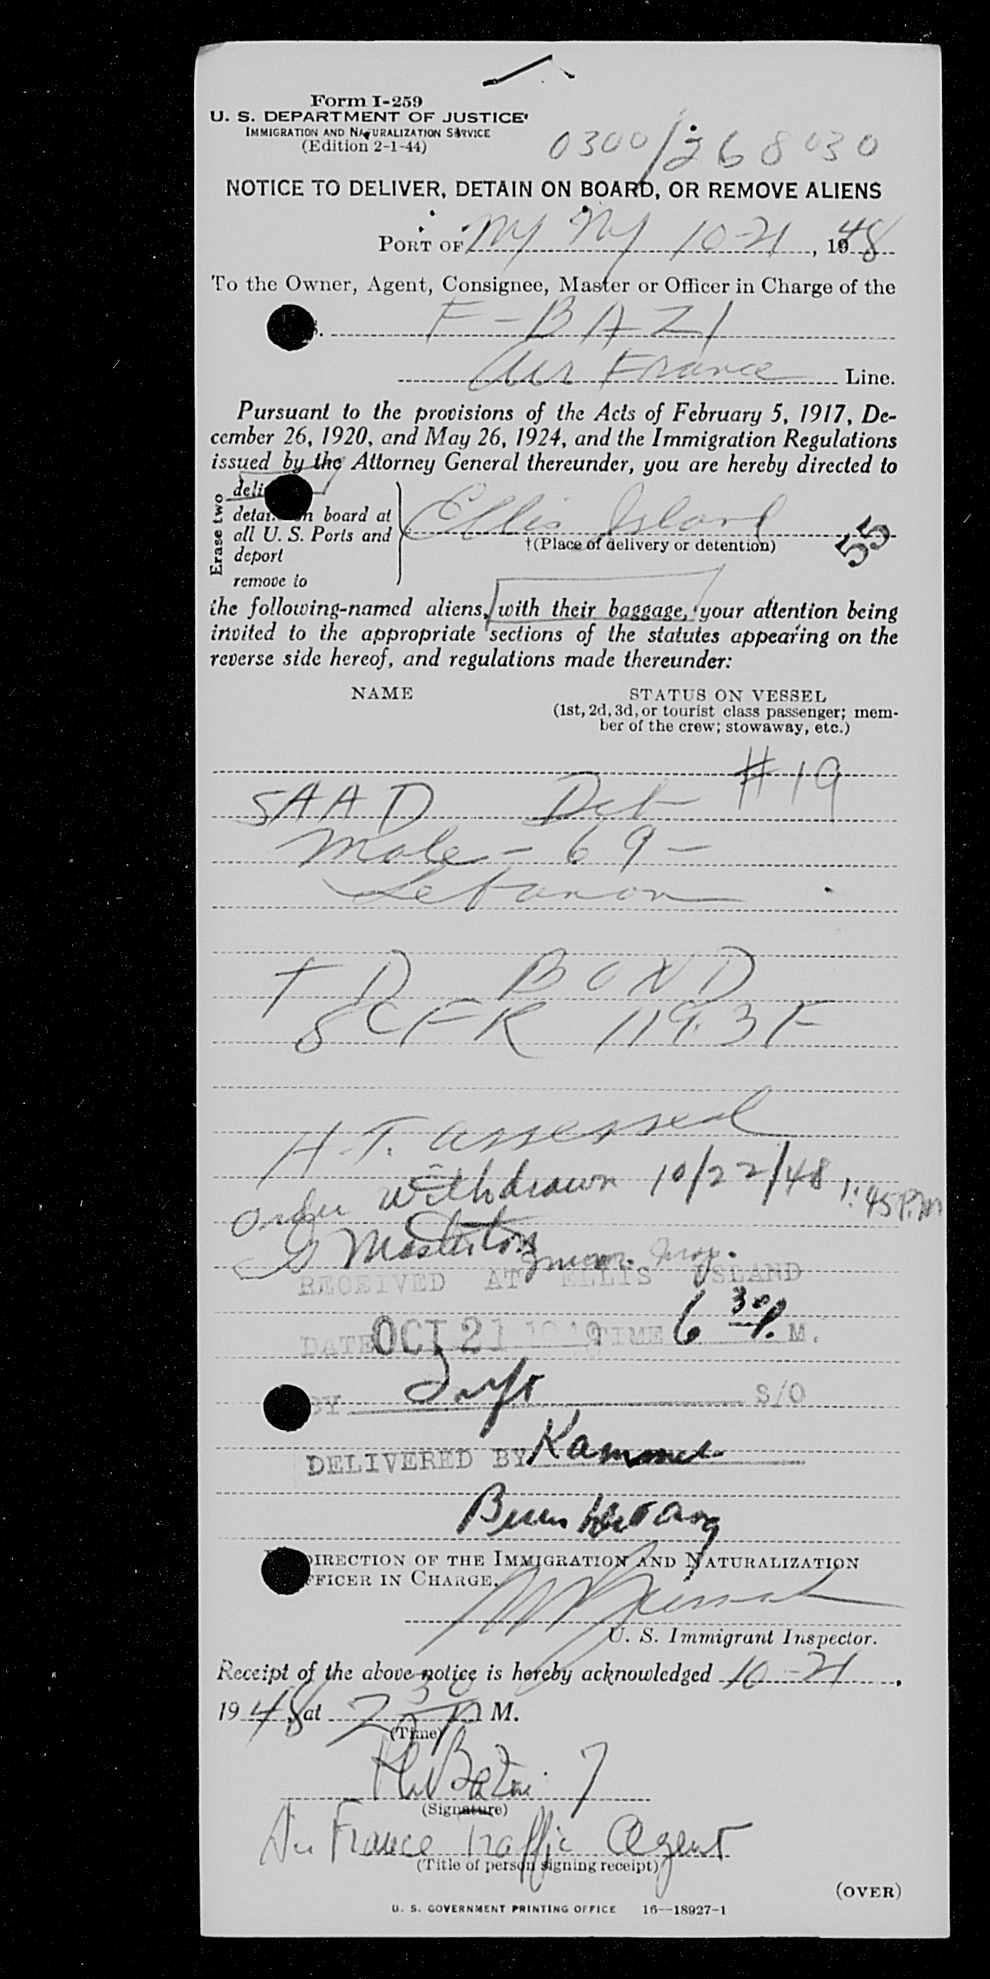 Form I-259
U. S. DEPARTMENT OF JUSTICE
IMMIGRATION AND NATURALIZATION SERVICE
(Edition 2-1-44)
0300/268030
NOTICE TO DELIVER, DETAIN ON BOARD, OR REMOVE ALIENS
PORT OF NY NY 10-21, 1948
To the Owner, Agent, Consignee, Master or Officer in Charge of the
F-BAZI
Air France Line.
Pursuant to the provisions of the Acts of February 5, 1917, De-
cember 26, 1920, and May 26, 1924, and the Immigration Regulations
issued by the Attorney General thereunder, you are hereby directed to
Erase two
deli
detain on board at
all U. S. Ports and
deport
remove to
Ellis Island
†(Place of delivery or detention)
55
the following-named aliens, with their baggage, your attention being
invited to the appropriate sections of the statutes appearing on the
reverse side hereof, and regulations made thereunder:
NAME
STATUS ON VESSEL
(1st, 2d, 3d, or tourist class passenger; mem-
ber of the crew; stowaway, etc.)
#19
SAAD Det
Male - 69 -
Lebanon
T D BOND
8 CFR 119.3F
H.T. assessed
Order withdrawn 10/22/48 1:45 P.M
Masterton Immi. Insp.
RECEIVED AT ELLIS ISLAND
DATE OCT 21 1948 TIME 6 30 P. M.
BY S/O
DELIVERED BY
DIRECTION OF THE IMMIGRATION AND NATURALIZATION
OFFICER IN CHARGE.
U. S. Immigrant Inspector.
Receipt of the above notice is hereby acknowledged 10-21,
1948, at 2 30 P M.
(Time)
(Signature)
Air France Traffic Agent
(Title of person signing receipt)
(OVER)
U. S. GOVERNMENT PRINTING OFFICE 16—18927-1